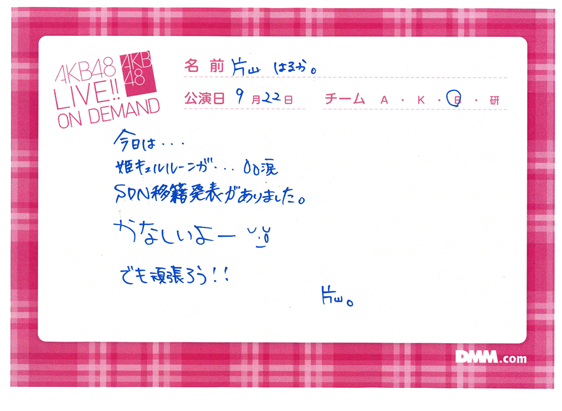 AKB48
LIVE!!
ON DEMAND
AKB
48
名前 片山 はるか。
公演日 9月22日 チーム A・K・B・研
今日は・・・
姫キュルルーンが・・・
SDN移籍発表がありました。
かなしいよー
でも頑張ろう!!
片山。
DMM.com